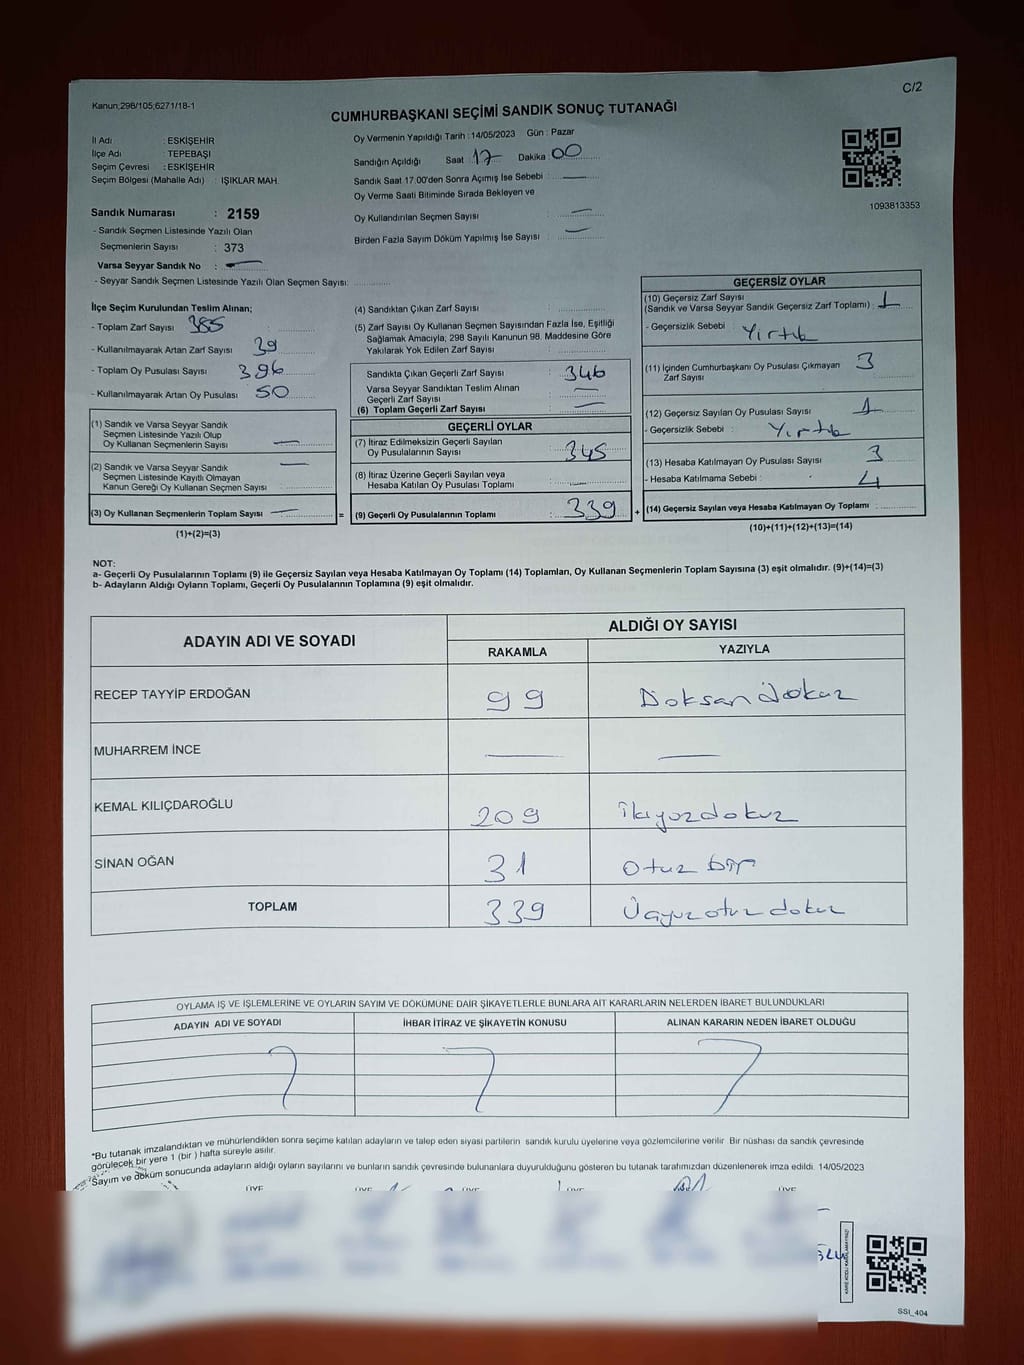 Kanun;298/105;6271/18-1
C/2
CUMHURBAŞKANI SEÇİMİ SANDIK SONUÇ TUTANAĞI
İl Adı : ESKİŞEHİR
İlçe Adı : TEPEBAŞI
Seçim Çevresi : ESKİŞEHİR
Seçim Bölgesi (Mahalle Adı) : IŞIKLAR MAH.
Sandık Numarası : 2159
- Sandık Seçmen Listesinde Yazılı Olan
Seçmenlerin Sayısı : 373
Varsa Seyyar Sandık No :
- Seyyar Sandık Seçmen Listesinde Yazılı Olan Seçmen Sayısı:
Oy Vermenin Yapıldığı Tarih : 14/05/2023 Gün : Pazar
Sandığın Açıldığı Saat 17 Dakika : 00
Sandık Saat 17:00'den Sonra Açımış İse Sebebi :
Oy Verme Saati Bitiminde Sırada Bekleyen ve
Oy Kullandırılan Seçmen Sayısı :
Birden Fazla Sayım Döküm Yapılmış İse Sayısı :
1093813353
İlçe Seçim Kurulundan Teslim Alınan;
- Toplam Zarf Sayısı : 385
- Kullanılmayarak Artan Zarf Sayısı : 39
- Toplam Oy Pusulası Sayısı : 396
- Kullanılmayarak Artan Oy Pusulası : 50
(1) Sandık ve Varsa Seyyar Sandık
Seçmen Listesinde Yazılı Olup
Oy Kullanan Seçmenlerin Sayısı :
(2) Sandık ve Varsa Seyyar Sandık
Seçmen Listesinde Kayıtlı Olmayan
Kanun Gereği Oy Kullanan Seçmen Sayısı :
(3) Oy Kullanan Seçmenlerin Toplam Sayısı :
(1)+(2)=(3)
(4) Sandıktan Çıkan Zarf Sayısı :
(5) Zarf Sayısı Oy Kullanan Seçmen Sayısından Fazla İse, Eşitliği
Sağlamak Amacıyla, 298 Sayılı Kanunun 98. Maddesine Göre
Yakılarak Yok Edilen Zarf Sayısı :
Sandıkta Çıkan Geçerli Zarf Sayısı : 346
Varsa Seyyar Sandıktan Teslim Alınan
Geçerli Zarf Sayısı :
(6) Toplam Geçerli Zarf Sayısı :
GEÇERLİ OYLAR
(7) İtiraz Edilmeksizin Geçerli Sayılan
Oy Pusulalarının Sayısı : 345
(8) İtiraz Üzerine Geçerli Sayılan veya
Hesaba Katılan Oy Pusulası Toplamı :
= (9) Geçerli Oy Pusulalarının Toplamı : 339 +
GEÇERSİZ OYLAR
(10) Geçersiz Zarf Sayısı
(Sandık ve Varsa Seyyar Sandık Geçersiz Zarf Toplamı) : 1
- Geçersizlik Sebebi : Yırtık
(11) İçinden Cumhurbaşkanı Oy Pusulası Çıkmayan 3
Zarf Sayısı :
(12) Geçersiz Sayılan Oy Pusulası Sayısı : 1
- Geçersizlik Sebebi : Yırtık
(13) Hesaba Katılmayan Oy Pusulası Sayısı : 3
- Hesaba Katılmama Sebebi : 4
(14) Geçersiz Sayılan veya Hesaba Katılmayan Oy Toplamı :
(10)+(11)+(12)+(13)=(14)
NOT:
a- Geçerli Oy Pusulalarının Toplamı (9) ile Geçersiz Sayılan veya Hesaba Katılmayan Oy Toplamı (14) Toplamları, Oy Kullanan Seçmenlerin Toplam Sayısına (3) eşit olmalıdır. (9)+(14)=(3)
b- Adayların Aldığı Oyların Toplamı, Geçerli Oy Pusulalarının Toplamına (9) eşit olmalıdır.
ADAYIN ADI VE SOYADI
ALDIĞI OY SAYISI
RAKAMLA YAZIYLA
RECEP TAYYİP ERDOĞAN 99 Doksan dokuz
MUHARREM İNCE
KEMAL KILIÇDAROĞLU 209 İkiyüzdokuz
SİNAN OĞAN 31 Otuz bir
TOPLAM 339 Üçyüzotuz dokuz
OYLAMA İŞ VE İŞLEMLERİNE VE OYLARIN SAYIM VE DÖKÜMÜNE DAİR ŞİKAYETLERLE BUNLARA AİT KARARLARIN NELERDEN İBARET BULUNDUKLARI
ADAYIN ADI VE SOYADI İHBAR İTİRAZ VE ŞİKAYETİN KONUSU ALINAN KARARIN NEDEN İBARET OLDUĞU
*Bu tutanak imzalandıktan ve mühürlendikten sonra seçime katılan adayların ve talep eden siyasi partilerin sandık kurulu üyelerine veya gözlemcilerine verilir Bir nüshası da sandık çevresinde
görülecek bir yere 1 (bir) hafta süreyle asılır.
*Sayım ve döküm sonucunda adayların aldığı oyların sayılarını ve bunların sandık çevresinde bulunanlara duyurulduğunu gösteren bu tutanak tarafımızdan düzenlenerek imza edildi. 14/05/2023
ÜYE ÜYE ÜYE ÜYE
SSI_404